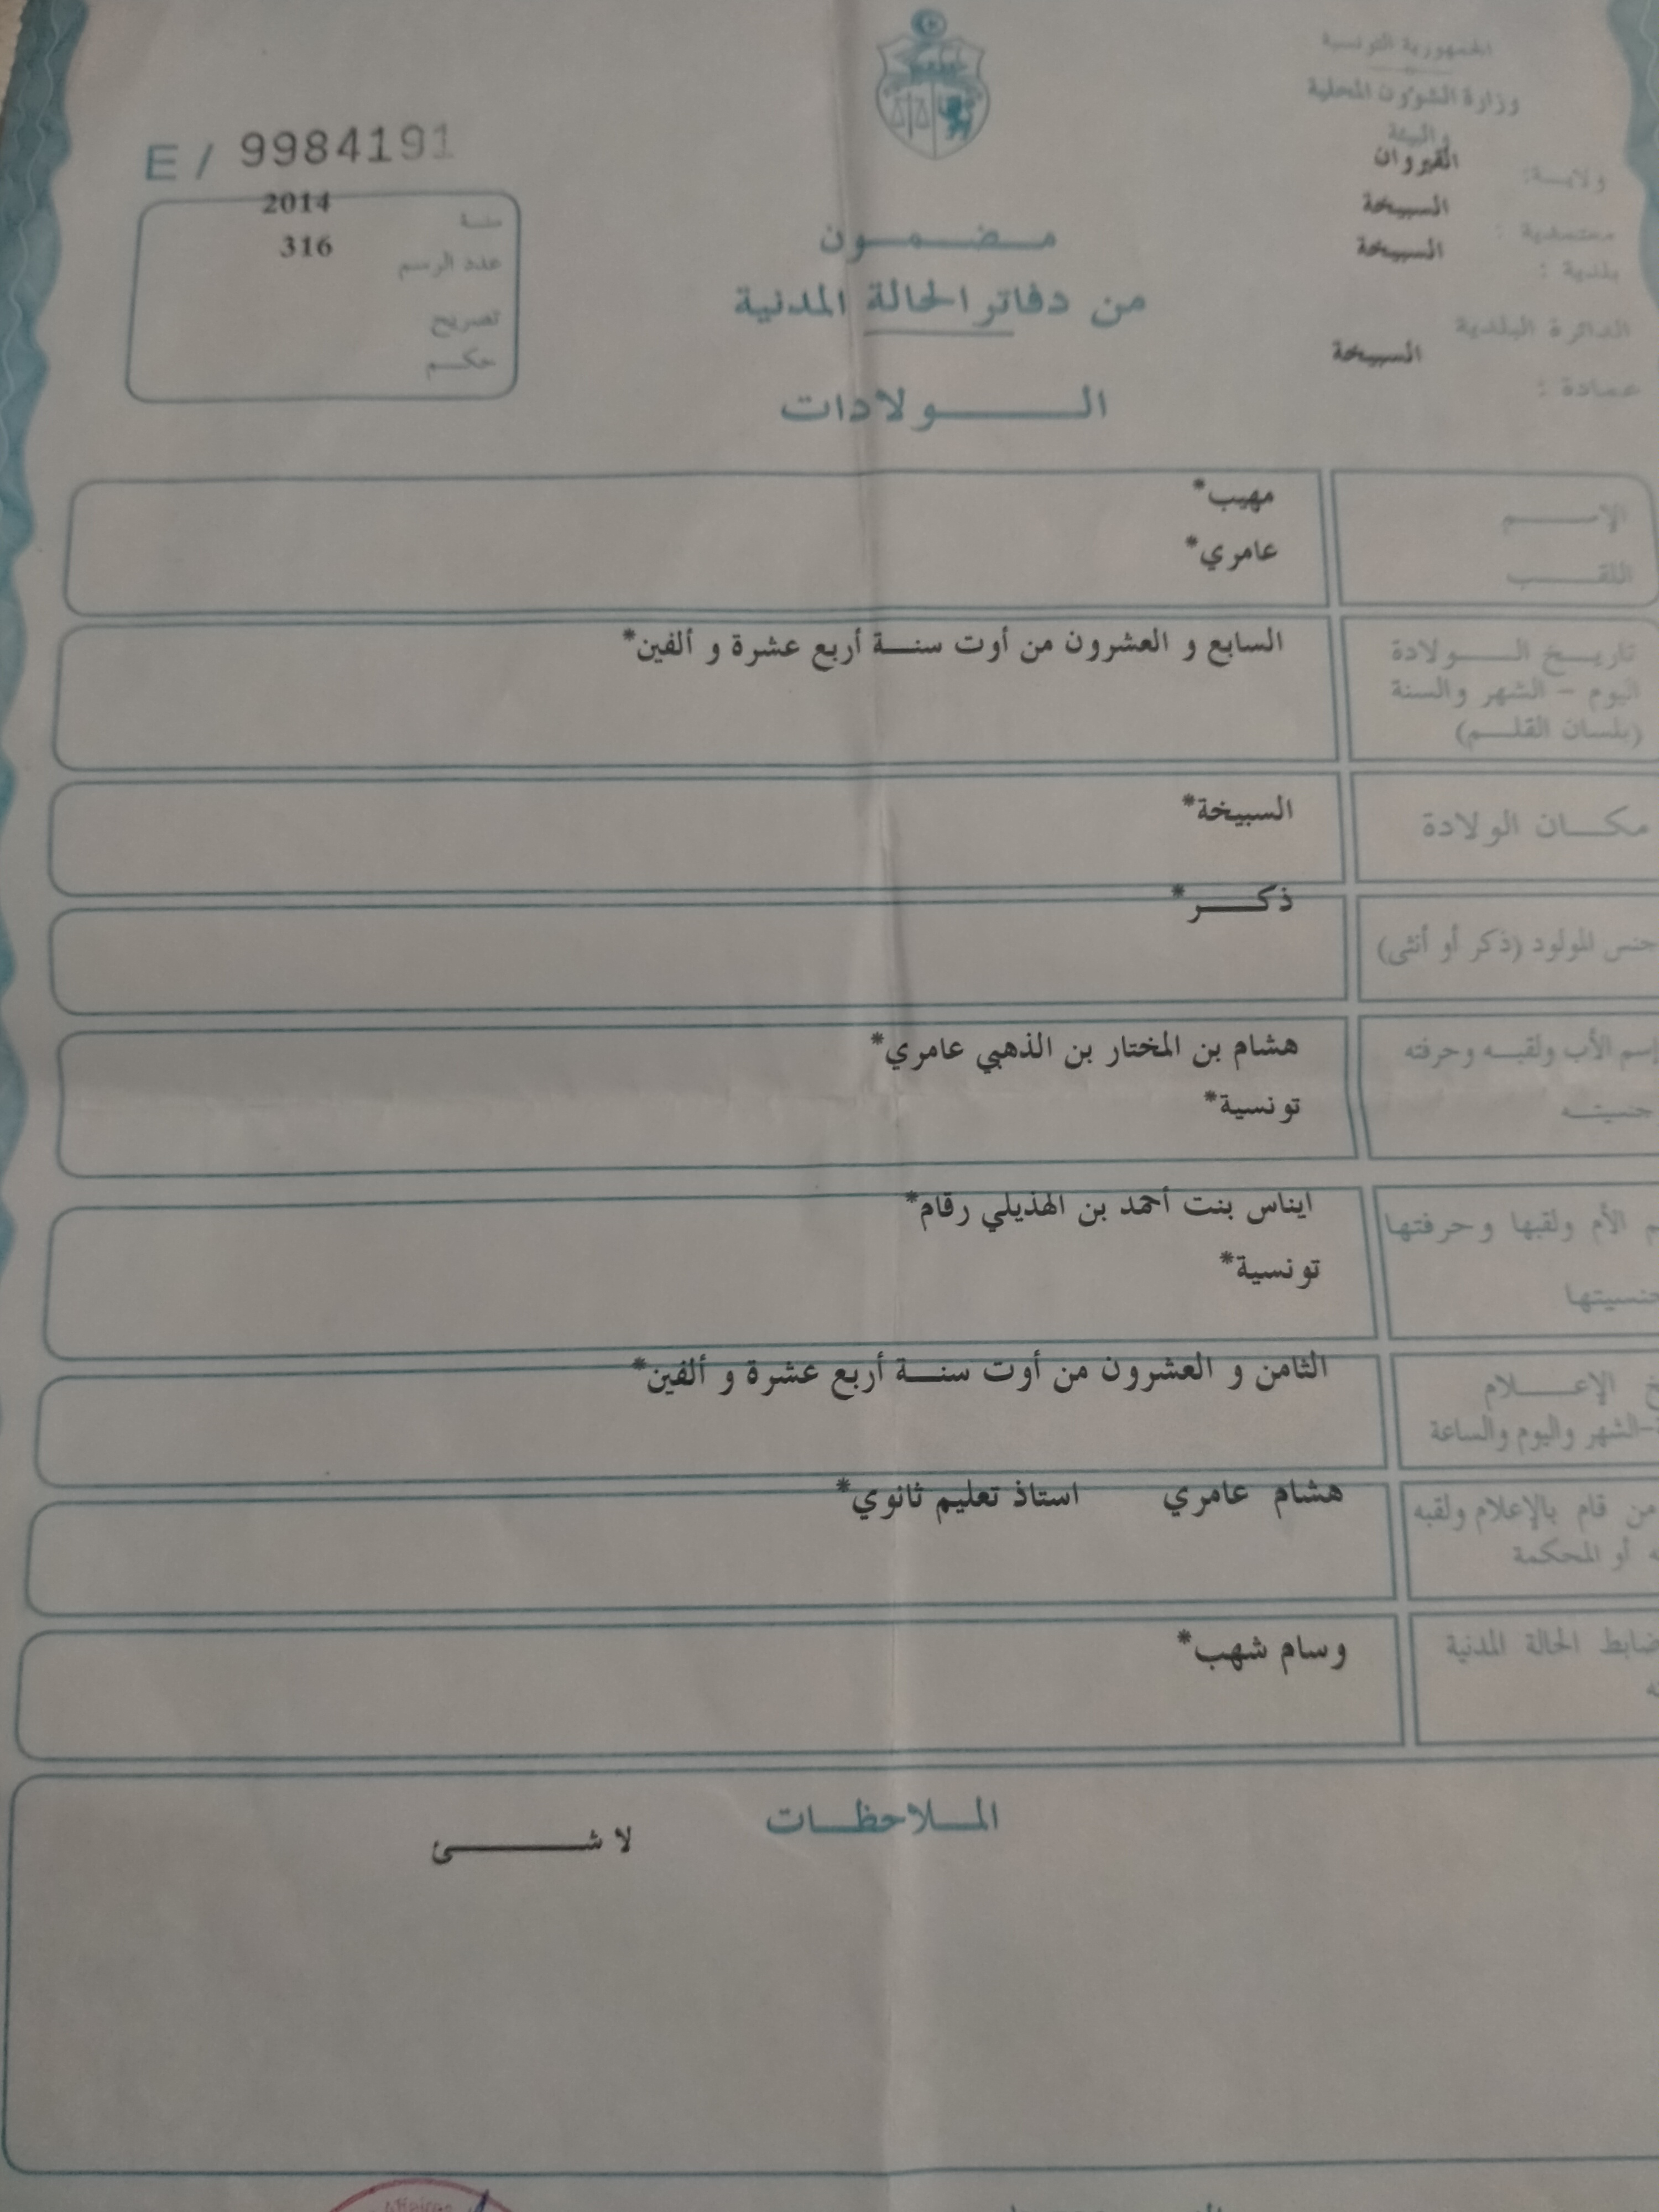 الجمهورية التونسية
وزارة الشؤون المحلية
والبيئة
ولاية: القيروان
معتمدية : السبيخة
بلدية : السبيخة
الدائرة البلدية
السبيخة
عمادة :
E / 9984191
سنة 2014
عدد الرسم 316
تصريح
حكم
مضمون
من دفاتر الحالة المدنية
الولادات
الإسم مهيب*
اللقب عامري*
تاريخ الولادة السابع و العشرون من أوت سنة أربع عشرة و ألفين*
اليوم - الشهر والسنة
(بلسان القلم)
مكان الولادة السبيخة*
جنس المولود (ذكر أو أنثى) ذكر*
إسم الأب ولقبه وحرفته هشام بن المختار بن الذهبي عامري*
جنسيته تونسية*
الأم ولقبها وحرفتها ايناس بنت أحمد بن الهذيلي رقام*
جنسيتها تونسية*
الإعلام الثامن و العشرون من أوت سنة أربع عشرة و ألفين*
-الشهر واليوم والساعة
من قام بالإعلام ولقبه هشام عامري استاذ تعليم ثانوي*
أو المحكمة
ضابط الحالة المدنية وسام شهب*
الملاحظات
لا شئ